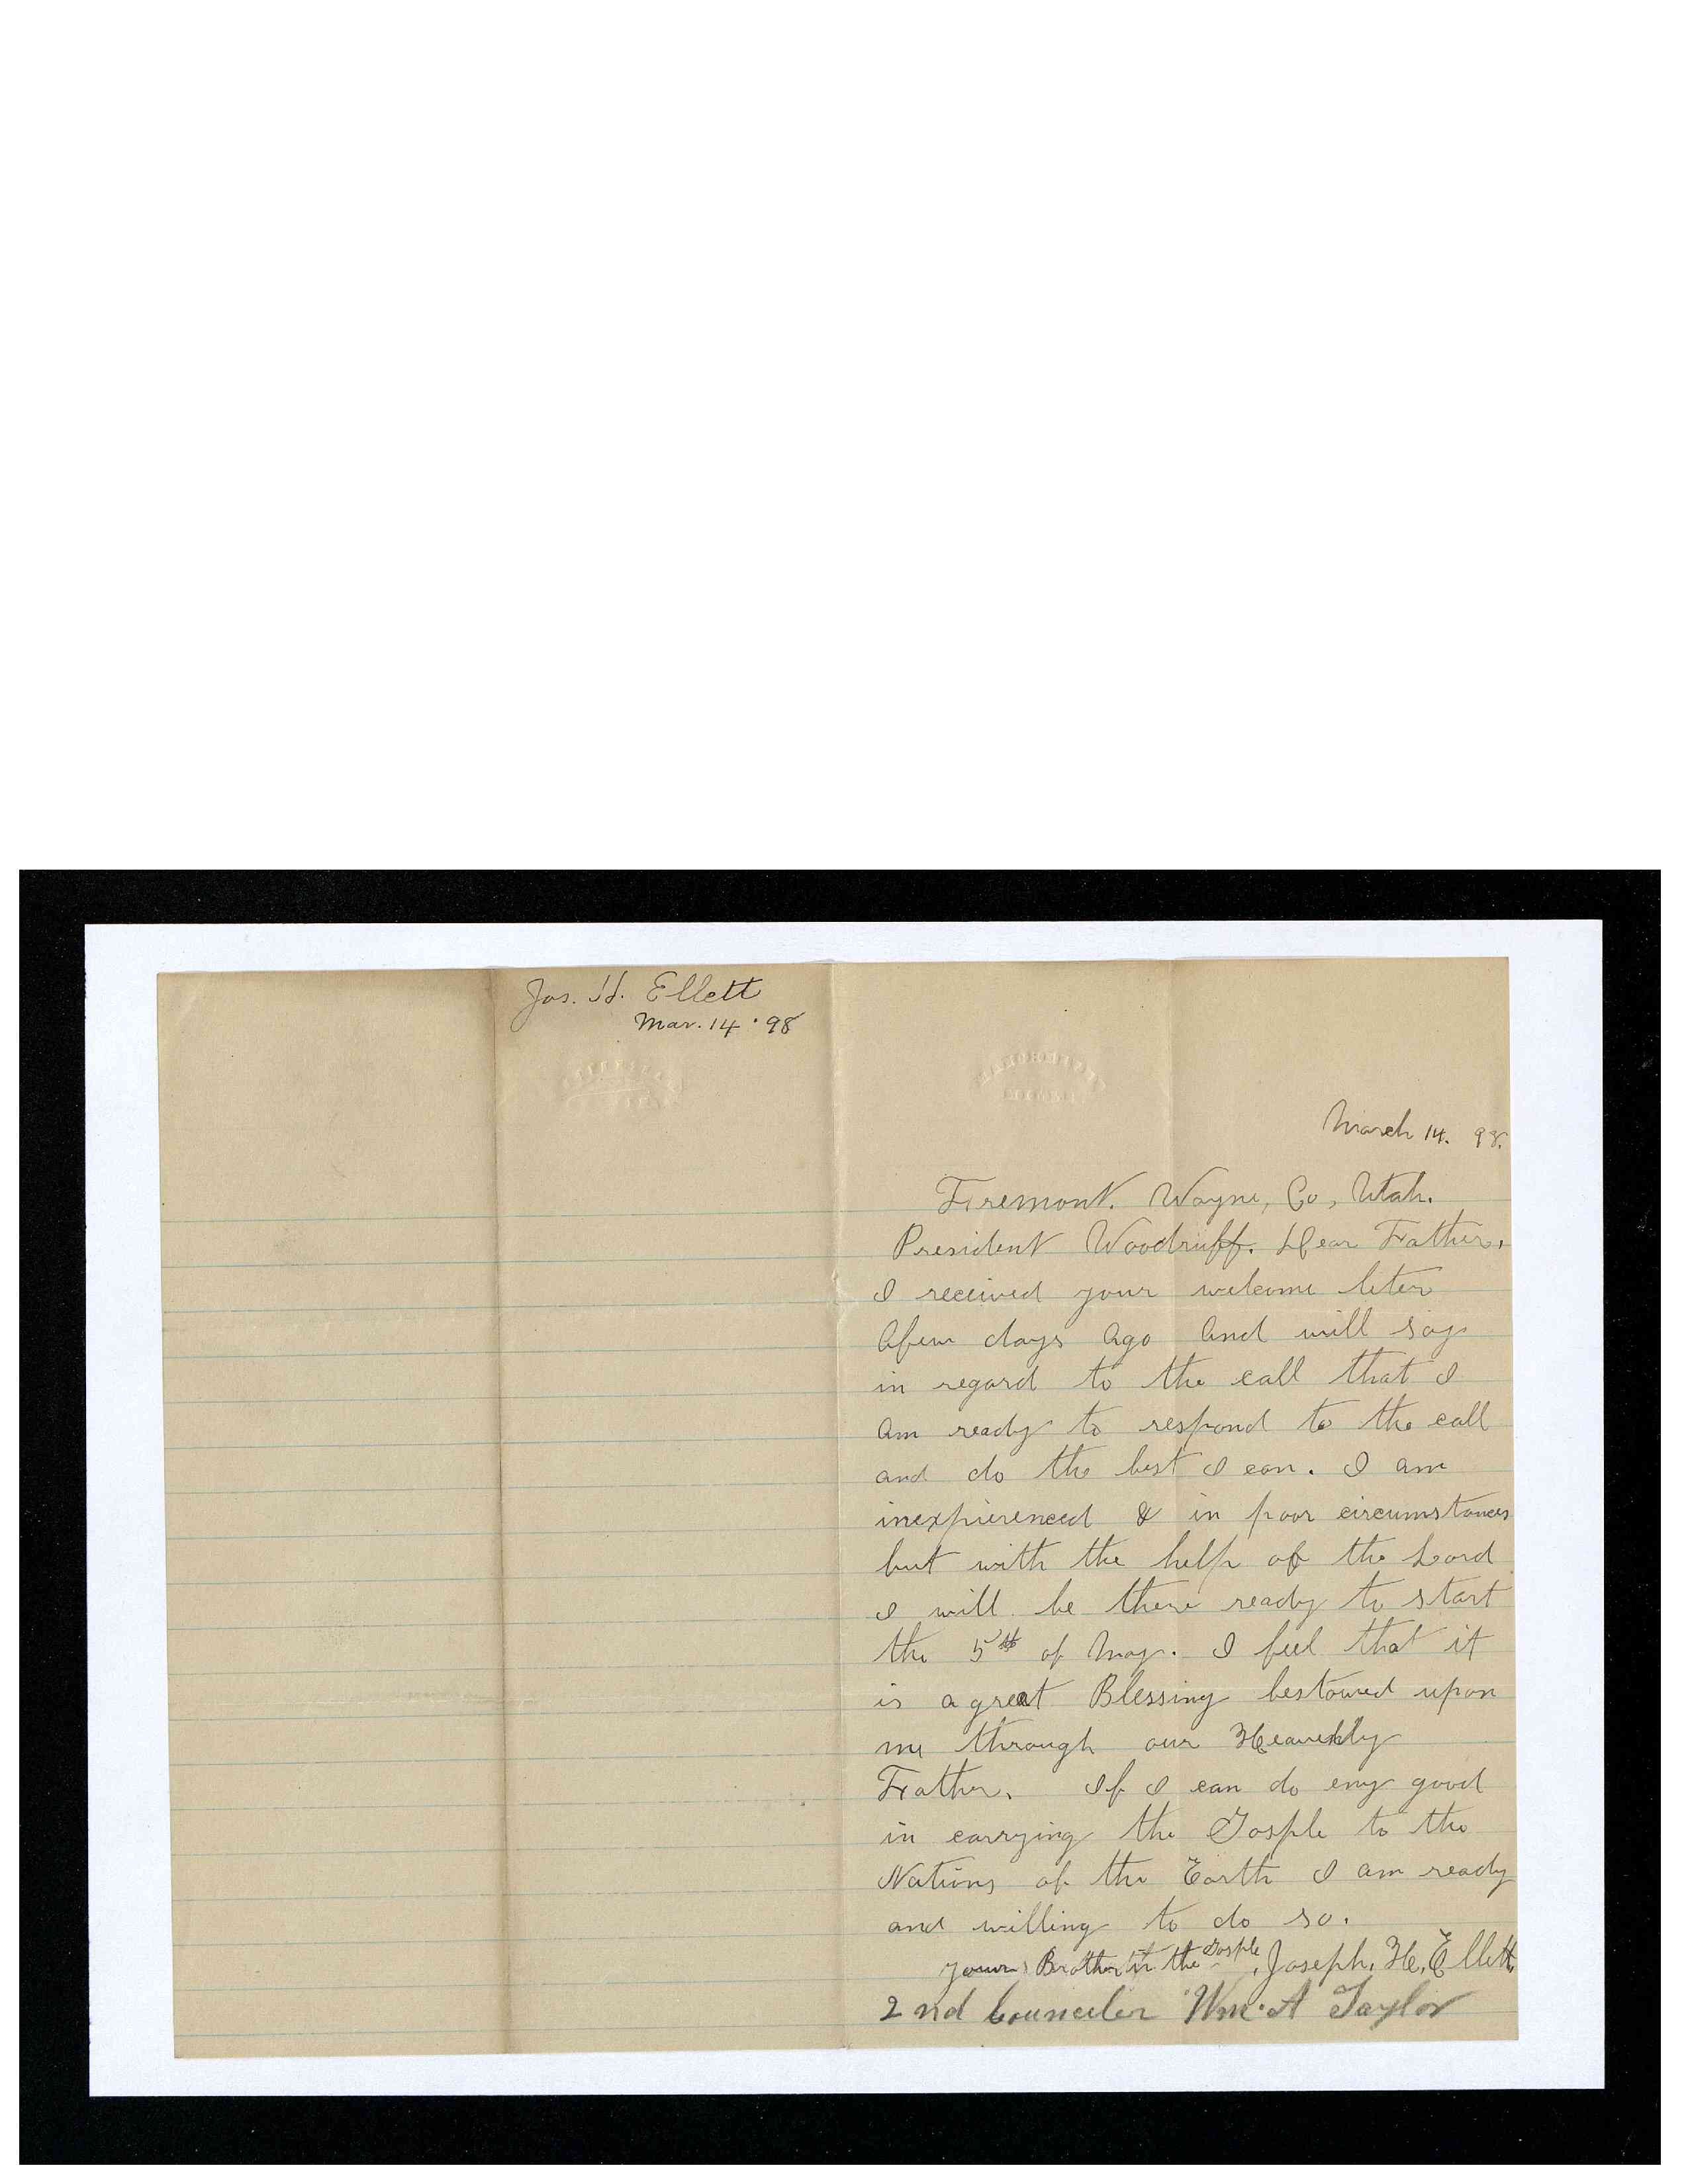 Jos. H. Ellett
Mar. 14 '98
March 14. 98.
Firemont. Wayne, Co, Utah.
President Woodruff. Dear Father,
I received your welcome leter
afew days ago and will say
in regard to the call that I
am ready to respond to the call
and do the best I can. I am
inexpierenced & in poor circumstances
but with the help of the Lord
I will be there ready to start
the 5th of May. I feel that it
is a great Blessing bestowed upon
me through our Heavenly
Father. If I can do eny good
in carrying the Gosple to the
Nations of the Earth I am ready
and willing to do so.
your Brother in the Gosple, Joseph. H. Ellett.
2nd Counciler Wm. A Taylor